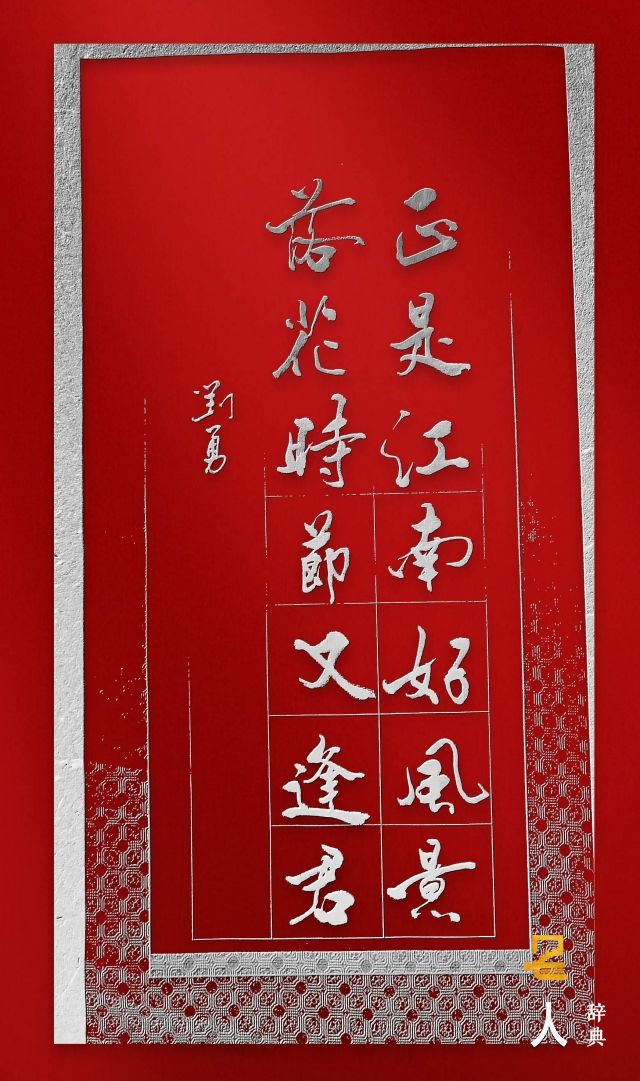 正是江南好風景
落花時節又逢君
劉勇
名人
辞典